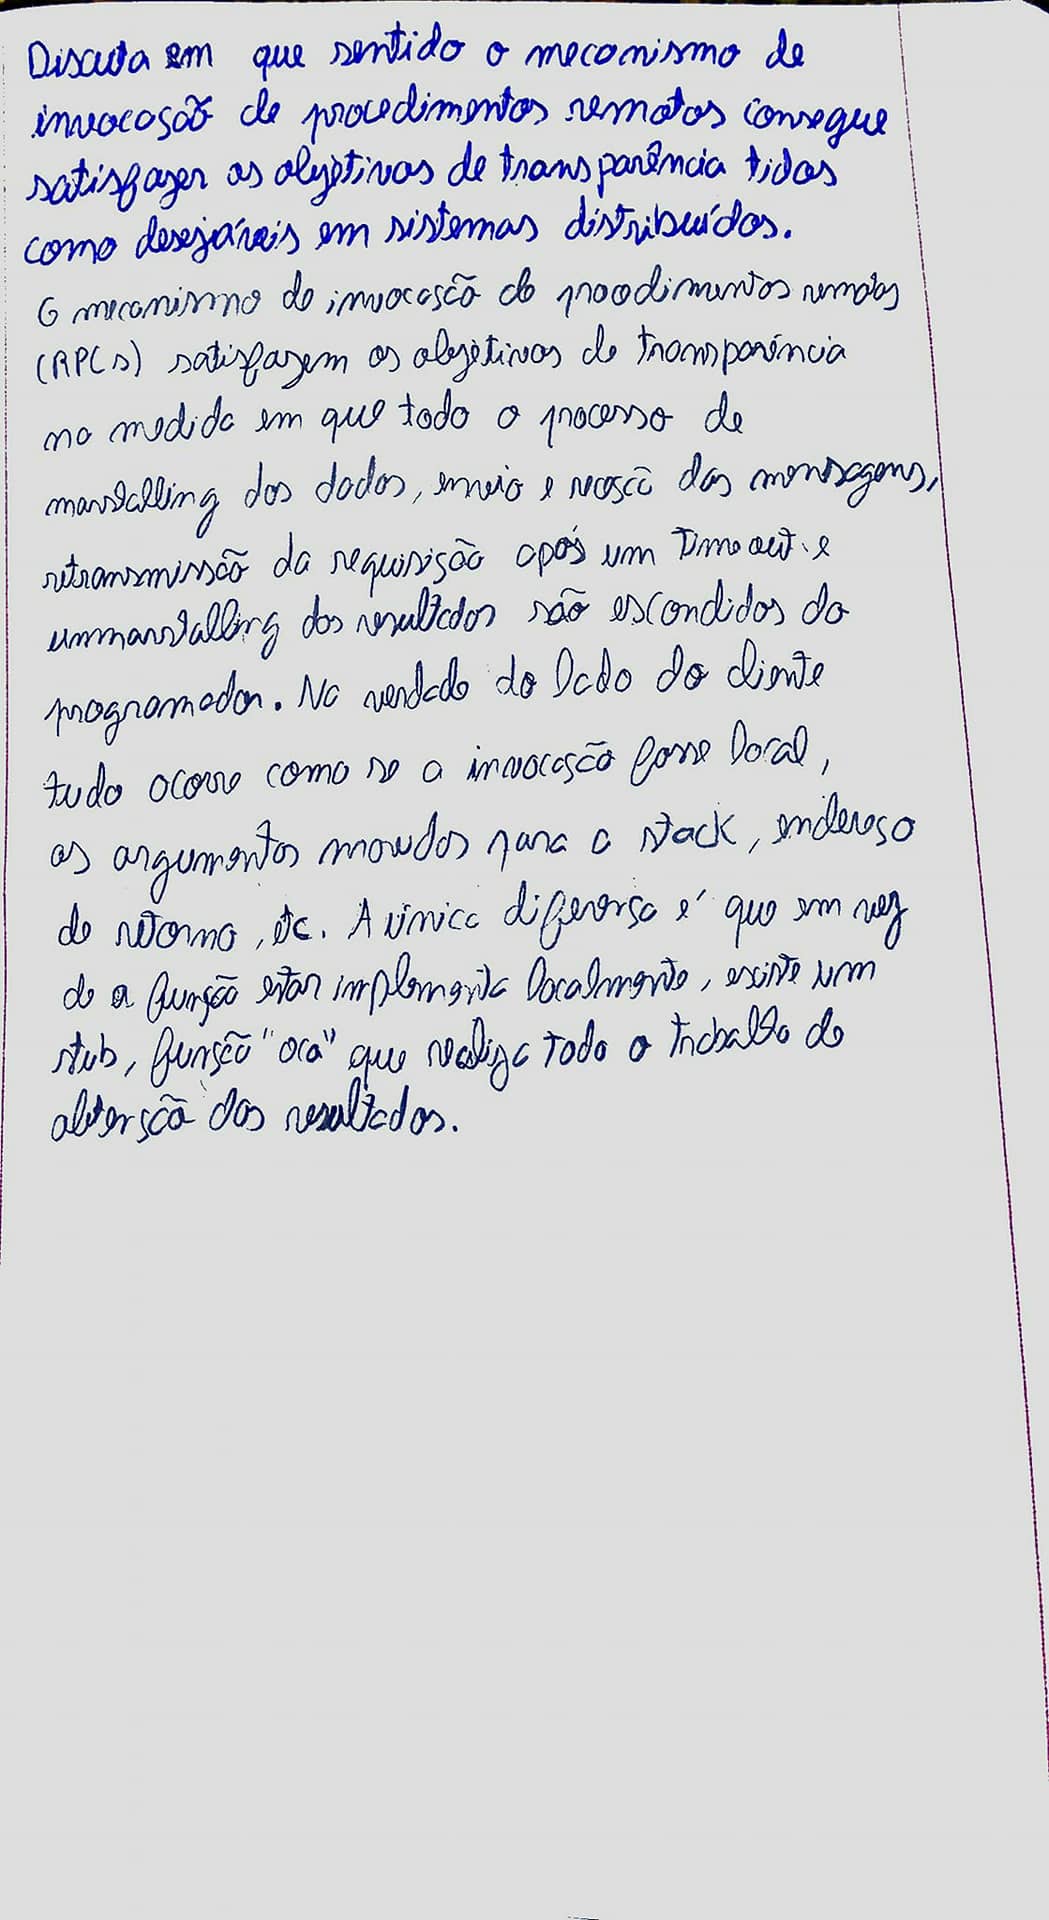 Discuta em que sentido o mecanismo de
invocação de procedimentos remotos consegue
satisfazer os objetivos de transparência tidos
como desejáveis em sistemas distribuídos.
O mecanismo de invocação de procedimentos remotos
(RPCs) satisfazem os objetivos de transparência
na medida em que todo o processo de
marshalling dos dados, envio e receção das mensagens,
retransmissão da requisição após um Timeout e
unmarshalling dos resultados são escondidos do
programador. Na verdade do lado do cliente
tudo ocorre como se a invocação fosse local,
os argumentos movidos para a stack, endereço
de retorno, etc. A única diferença é que em vez
de a função estar implementa localmente, existe um
stub, função "oca" que realiza todo o trabalho de
obtenção dos resultados.